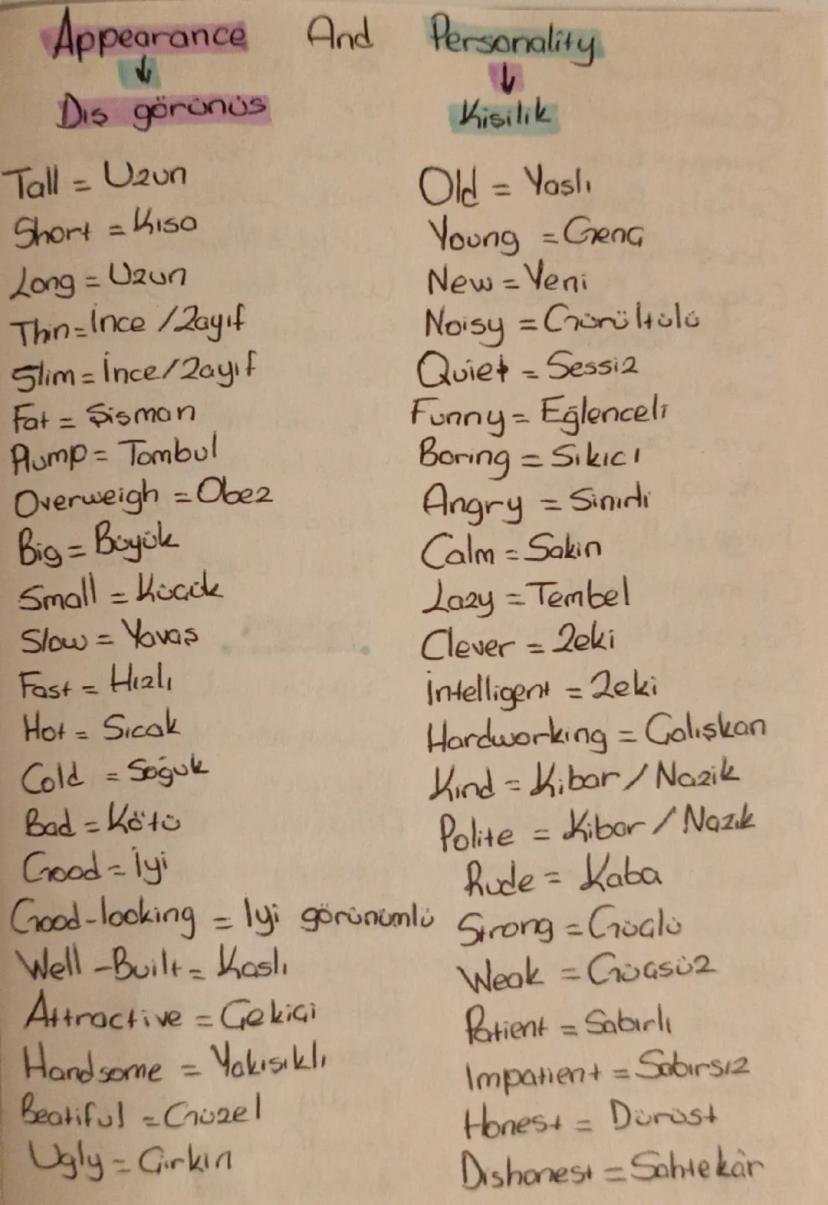 Appearance And Personality
Dış görünüş
Kişilik
Tall = Uzun
Short = Kısa
Long = Uzun
Thin = İnce / Zayıf
Slim = İnce / Zayıf
Fat = Şişman
Plump = Tombul
Overweigh = Obez
Big = Büyük
Small = Küçük
Slow = Yavaş
Fast = Hızlı
Hot = Sıcak
Cold = Soğuk
Bad = Kötü
Good = İyi
Good-looking = Iyi görünümlü
Well-Built = Kaslı
Attractive = Çekici
Handsome = Yakışıklı
Beatiful = Güzel
Ugly = Çirkin
Old = Yaslı
Young = Genç
New = Yeni
Noisy = Gürültülü
Quiet = Sessiz
Funny = Eğlenceli
Boring = Sıkıcı
Angry = Sinirli
Calm = Sakin
Lazy = Tembel
Clever = Zeki
İntelligent = Zeki
Hardworking = Çalışkan
Kınd = Kibar / Nazik
Polite = Kibar / Nazık
Rude = Kaba
Strong = Güçlü
Weak = Güçsüz
Patient = Sabırlı
Impatient = Sabırsız
Honest = Dürüst
Dishonest = Sahtekâr